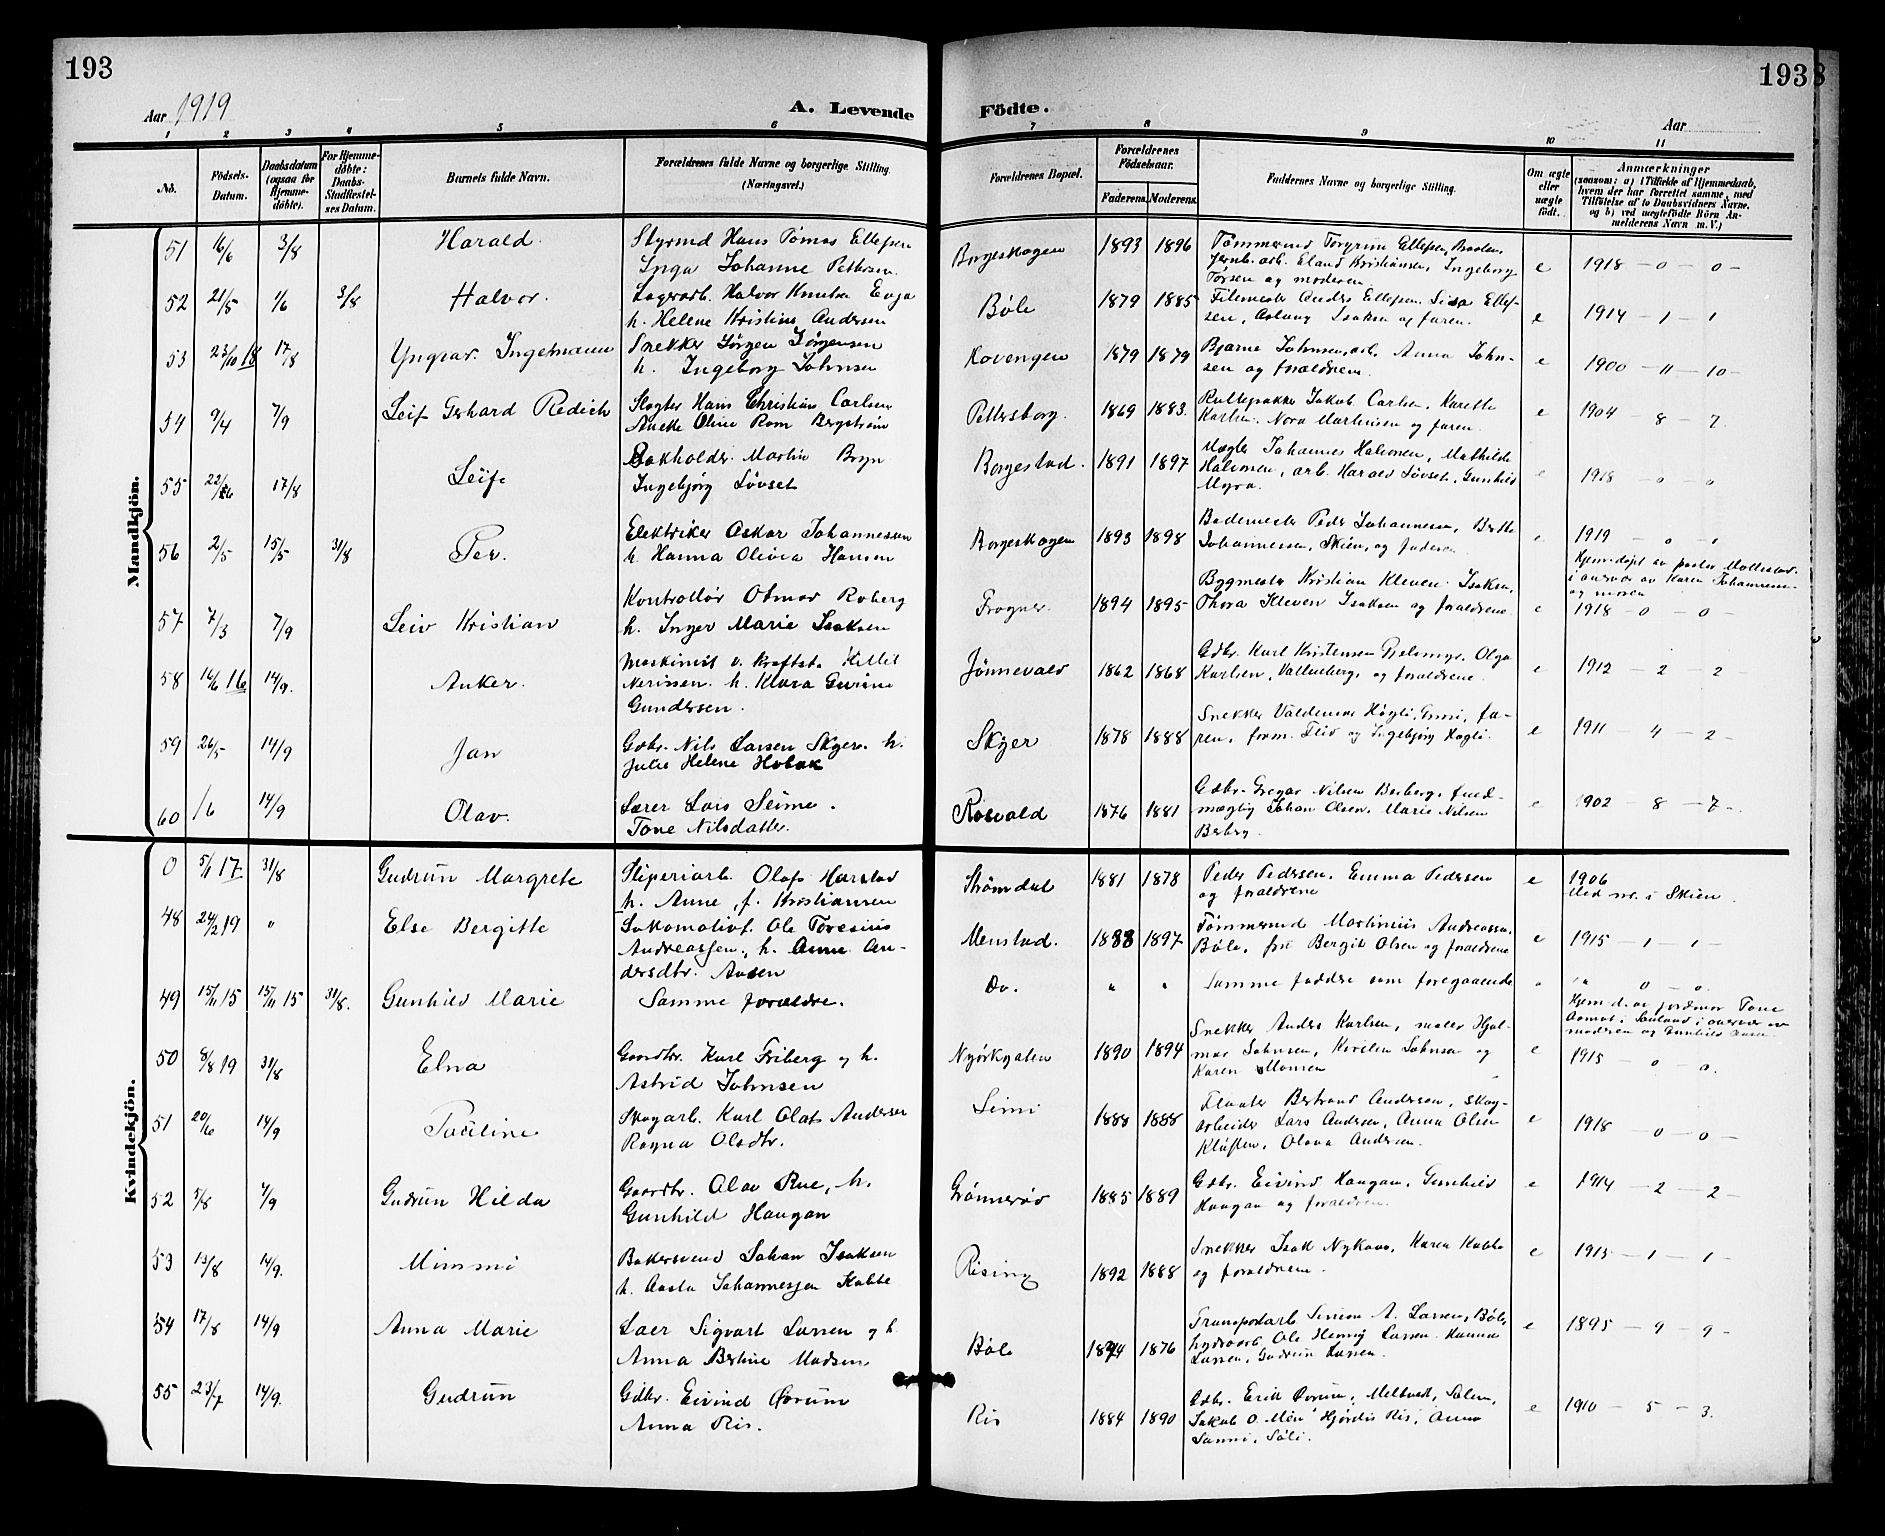 193
193
Aar 1919
A. Levende
Födte.
Aar
1 2 3 4 5 6 7 8 9 10 11
No.
Födsels-Datum.
Daabsdatum (ogsaa for Hjemme-döbte).
For Hjemme-döbte: Daabs-Stadfæstel-ses Datum.
Barnets fulde Navn.
Forældrenes fulde Navne og borgerlige Stilling. (Næringsvei.)
Forældrenes Bopæl.
Forældrenes Födselsaar.
Faderens.
Moderens.
Faddernes Navne og borgerlige Stilling.
Om ægte eller uægte födt.
Anmærkninger
(saasom: a) i Tilfælde af Hjemmedaab,
hvem der har forrettet samme, med
Tilföielse af to Daabsvidners Navne.
og b) ved uægtefödte Börn An-
melderens Navn m. V.)
Mandkjön.
51 16/6 3/8 Harald. Styrmd Hans Tomas Ellefsen
Inga Johanne Pettersen. Borgeskogen 1893 1896 Tømmermd Torgrim Ellefsen,
Jernb. arb. Eland Kristiansen, Ingeborg
Torsen og moderen. e 1918 – 0 – 0 –
52 21/5 1/6 3/8 Halvor. Lagerarb. Halvor Knutsen
h. Helene Kristine Andersen Bøle 1879 1885 Filemester Anders Ellefsen. Lisa Ellef-
sen, Aslaug Isaksen og faren. e 1914 – 1 – 1
53 23/10 18 17/8 Yngvar. Ingemann Snekker Jørgen Jørgensen
h. Ingeborg Johnsen Hovengen 1879 1879 Bjarne Johnsen, arb. Anna John-
sen og forældrene. e 1900 – 11 – 10 –
54 9/4 7/9 Leif Gerhard Redick Slagter Hans Christian Carlsen
Anette Oline Rom Bergstrøm Pettersborg. 1869 1883. Jakob Carlsen, Karette
Karlsen. Nora Martinsen og faren. e 1904 – 8 – 7
55 22/6 17/8 Leif. Bokholder. Martin Bryn
Ingebjørg Løvset Borgestad. 1891 1897 Mægler Johannes Halvorsen, Mathilde
Halvorsen, arb. Harald Løvset, Gunhild
Myra. e 1918 – 0 – 0
56 2/5 15/5 31/8 Per. Elektriker Oskar Johannessen
h. Hanna Olivia Hansen Borgeskogen 1893 1898 Bademester Peder Johannessen, Berthe
Johannessen, Skien, og faderen. e 1919 – 0 – 1
Hjem. døpt av pastor
i nærvær av Karen Johannessen
og moren
57 7/3 7/9 Leiv Kristian Kontrollør Otmar Roberg
h. Inger Marie Isaksen Frogner. 1894 1895 Bygmester Kristian Kleven Isaksen,
Thora Kleven Isaksen og forældrene. e 1918 – 0 – 0 –
58 16/6 16 14/9. Anker. Maskinmst v. kraftst. Kittil
Nerissen. h. Klara Gurine
Gundersen. Jønnevald 1862 1868 Gdbr. Karl Kristensen Olga
Karlsen, Vallenberg, og forældrene. e 1912 – 2 – 2 –
59 26/5 14/9 Jan Gdbr. Nils Larsen Skyer. h.
Julie Helene Hobæk Skyer 1878 1888 Snekker Valdemar Høgli, fa-
ren, og Ingebjørg Høgli. e 1911 – 4 – 2 –
60 1/6 14/9 Olav. Lærer Lars Seime.
Tone Nilsdatter. Rosvald 1876 1881 Gdbr. Gregar Nilsen Berberg, fuld-
mægtig Johan Olsen, Marie Nilsen
Berberg. e 1902 – 8 – 7 –
Kvindekjön.
0 5/1 17 31/8 Gudrun Margrete Sliperiarb. Olaf Harstad
h. Anne, f. Kristiansen Strømdal 1881 1878 Peder Pedersen, Emma Pedersen
og forældrene e 1906
Uid. nr. i Skien
48 24/2 19 " Else Bergitte Lokomotivf. Ole Toresius
Andreassen, h. Anne An-
dersdtr. Aasen Menstad. 1888 1897 Tømmermd Martinius Andreassen,
Bøle, fru Bergit Olsen og forældrene e 1915 – 1 – 1 –
49 15/11 15 15/11 15 31/8. Gunhild Marie Samme forældre. Do. " " Samme faddere som foregaaende " " 0 – 0.
Hjem. d. av jordmor Tone
Aamot i Sauland i nærvær av
moderen og Gunhild Aasen
50 8/8 19 31/8 Elna Gaardbr. Karl Friberg og h.
Astrid Johnsen Nyørkgaten 1890 1894 Snekker Anders Karlsen, maler Hjal-
mar Johnsen, Johnsen og
Karen Monsen e 1915 – 0 – 0.
51 20/6 14/9 Pauline Skogarb. Karl Olaf Andersen
Ragna Olsdtr. Limi 1888 1888 Fløter Bertrand Andersen, skog-
arbeider Lars Andersen, Anna Olsen
Kløften, Olava Andersen. e 1918 – 0 – 0 –
52 5/8 7/9 Gudrun Hilda Gaardbr. Olav Rue, h.
Gunhild Haugan Grønnerød 1885 1889 Gdbr. Eivind Haugan, Gunhild
Haugan og forældrene. e 1914 – 2 – 2 –
53 13/8 14/9. Mimmi Bakersvend Johan Isaksen
h. Aasta Johannessen Kabbe Rising 1892 1888 Snekker Isak Nykaas, Karen Kabbe
og forældrene. e 1915 – 1 – 1 –
54 17/8 14/9 Anna Marie Laer Sigvart Larsen og h.
Anna Bertine Madsen Bøle 1874 1876 Transportarb Simon A. Larsen, Bøle,
hydroarb. Ole Henry Larsen. Hanna
Larsen, Gudrun Larsen. e 1895 – 9 – 9 –
55 23/7 14/9. Gudrun Gdbr. Eivind Ørum
Anna Ris. Ris 1884 1890 Gdbr. Erik Ørum, Meltveit, Solum,
Jakob O. Moen Hjørdis Ris, Anna
Sanni, Søli. e 1910 – 5 – 3.